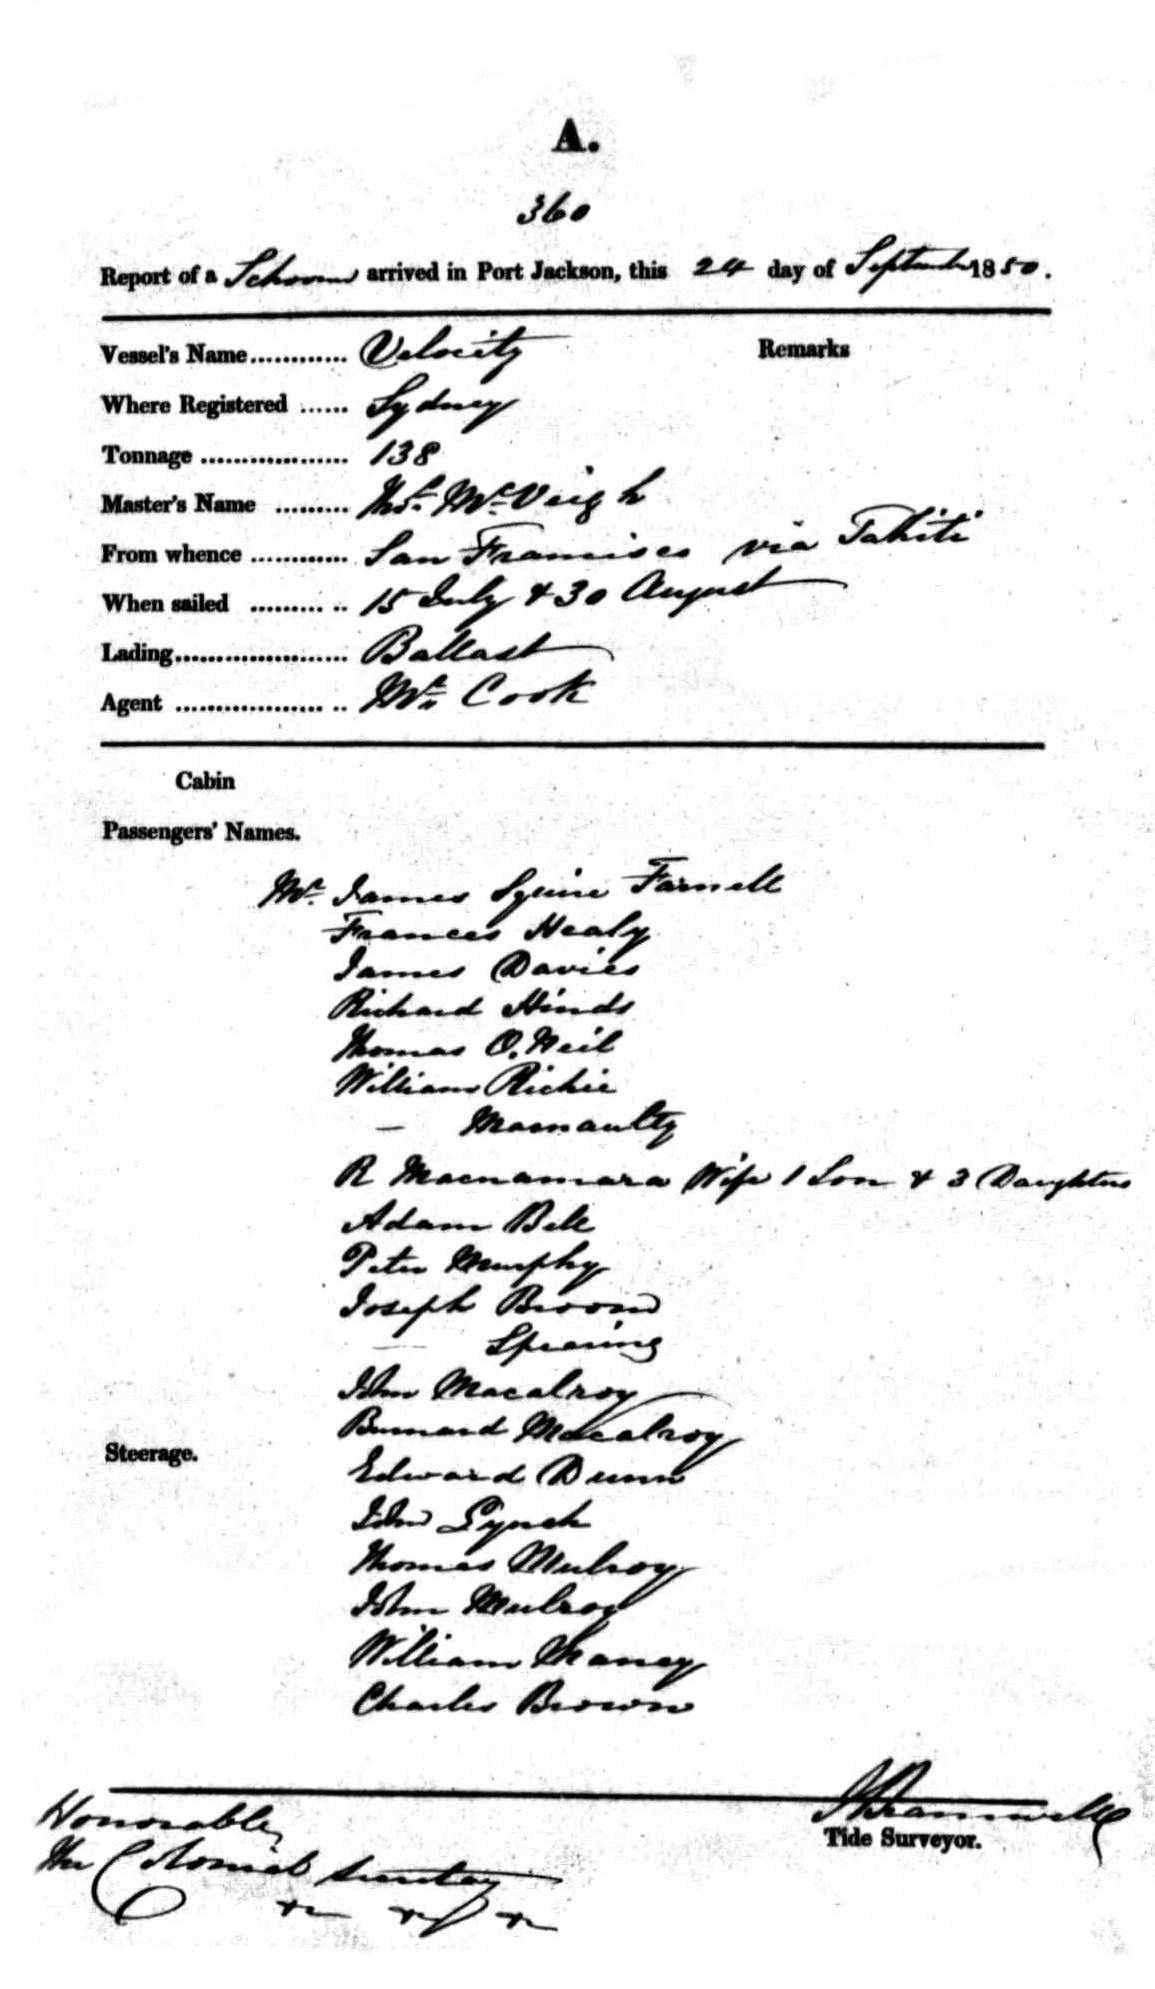 A.
360
Report of a Schooner arrived in Port Jackson, this 24 day of September 1850.
Vessel's Name............ Velocity Remarks
Where Registered ...... Sydney
Tonnage .................. 138
Master's Name ......... Thos. McVeigh
From whence ............ San Francisco via Tahiti
When sailed ......... .. 15 July & 30 August
Lading..................... Ballast
Agent .................. .. Mr. Cook
Cabin
Passengers' Names.
Mr. James Squire Farnell
Frances Healy
James Davies
Richard Hinds
Thomas O. Neil
William Richie
— Macnaulty
R Macnamara Wife 1 Son & 3 Daughters
Adam Bell
Peter Murphy
Joseph Broom
— Spearing
John Macalroy
Bernard Macalroy
Steerage.
Edward Dunn
John Lynch
Thomas Mulroy
John Mulroy
William
Charles Brown
Honorable
The Colonial Secretary
Tide Surveyor.